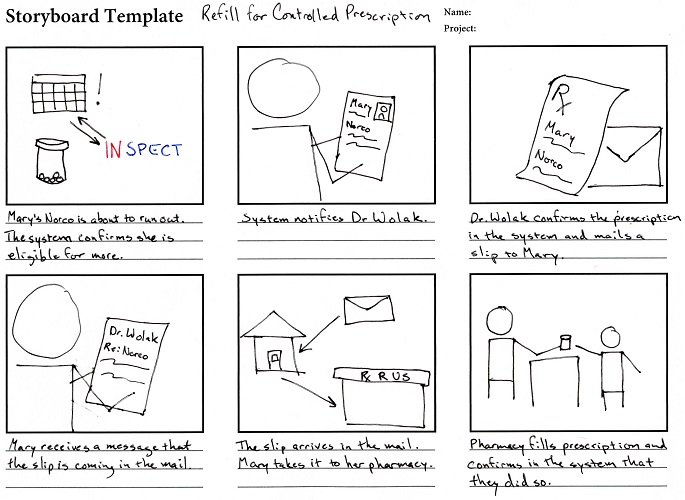 Storyboard Template Refill for Controlled Prescription
Name:
Project:
!
INSPECT
Mary's Norco is about to run out.
The system confirms she is
eligible for more.
Mary
Norco
System notifies Dr Wolak.
Rx
Mary
Norco
Dr. Wolak confirms the prescription
in the system and mails a
slip to Mary.
Dr. Wolak
Re: Norco
Mary receives a message that
the slip is coming in the mail.
Rx R US
The slip arrives in the mail.
Mary takes it to her pharmacy.
Pharmacy fills prescription and
confirms in the system that
they did so.